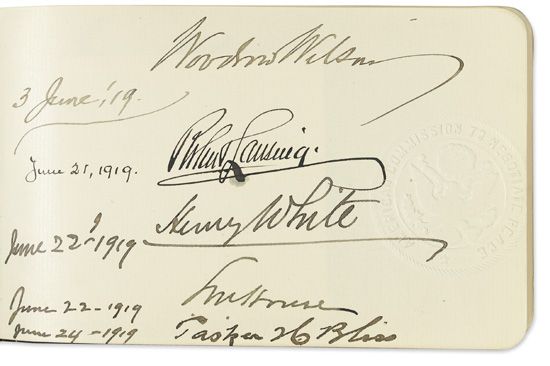 Woodrow Wilson
3 June '19.
Robert Lansing.
June 21, 1919.
Henry White
June 22d 1919
EM House
June 22-1919
Tasker H Bliss
June 24-1919
AMERICAN COMMISSION TO NEGOTIATE PEACE